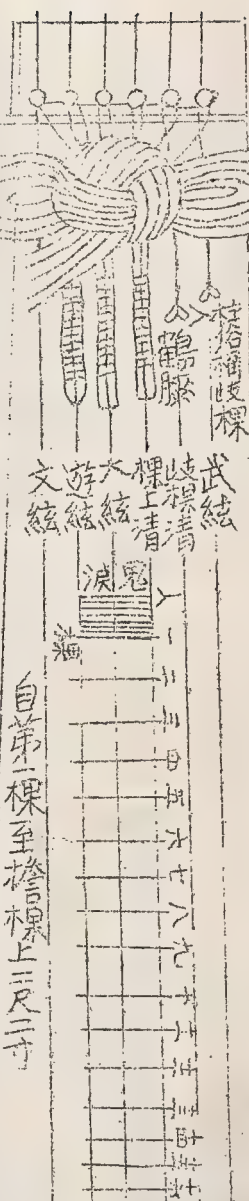 柱俗稱岐棵
鶴膝
武絃
岐棵清
棵上清
大絃
遊絃
文絃
鬼淚
棵
一
二
三
四
五
六
七
八
九
十
十一
十二
十三
十四
十五
十六
自第一棵至檐棵上二尺二寸